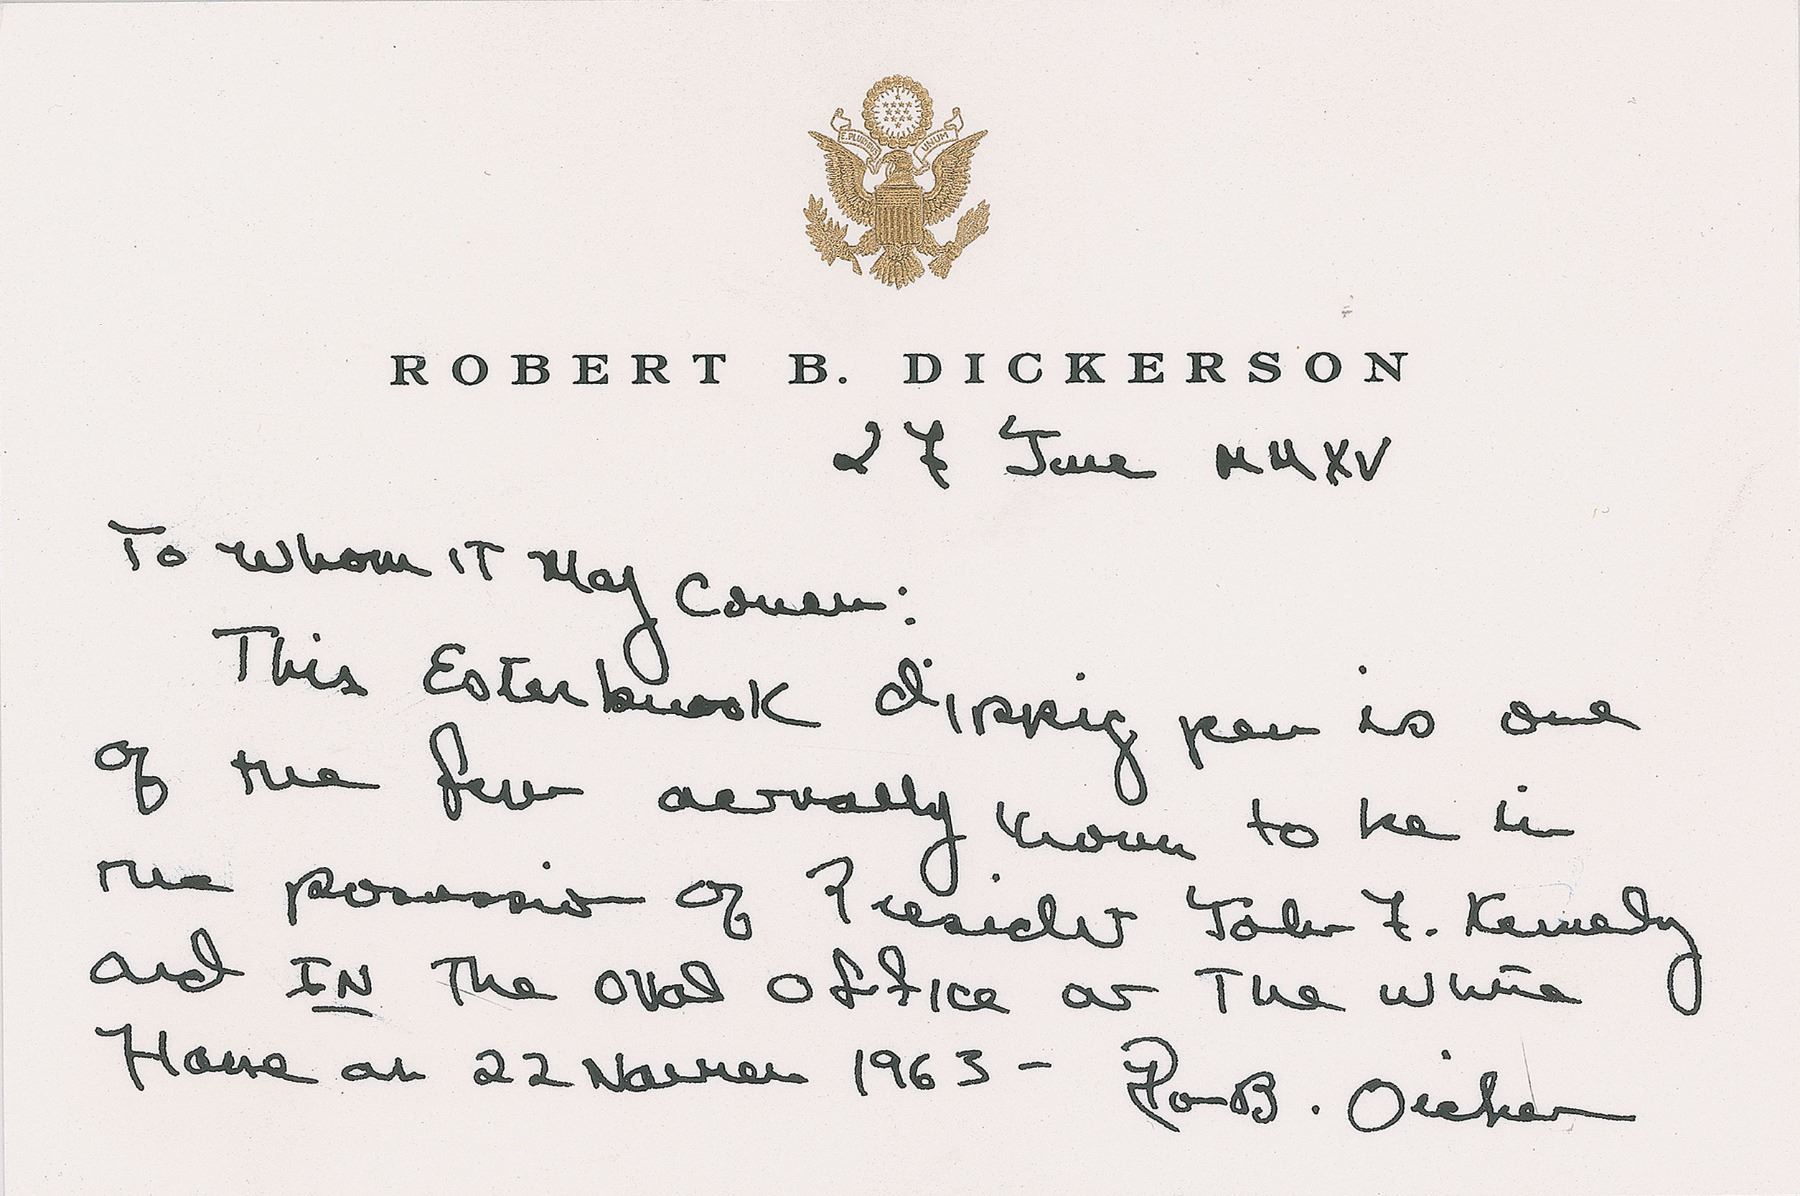 E PLURIBUS UNUM
ROBERT B. DICKERSON
27 June MMXV
To Whom IT May Concern:
This Esterbrook dipping pen is one
of the few actually known to be in
the possession of President John F. Kennedy
and IN The Oval Office at The White
House on 22 November 1963 – Robt B. Dickerson